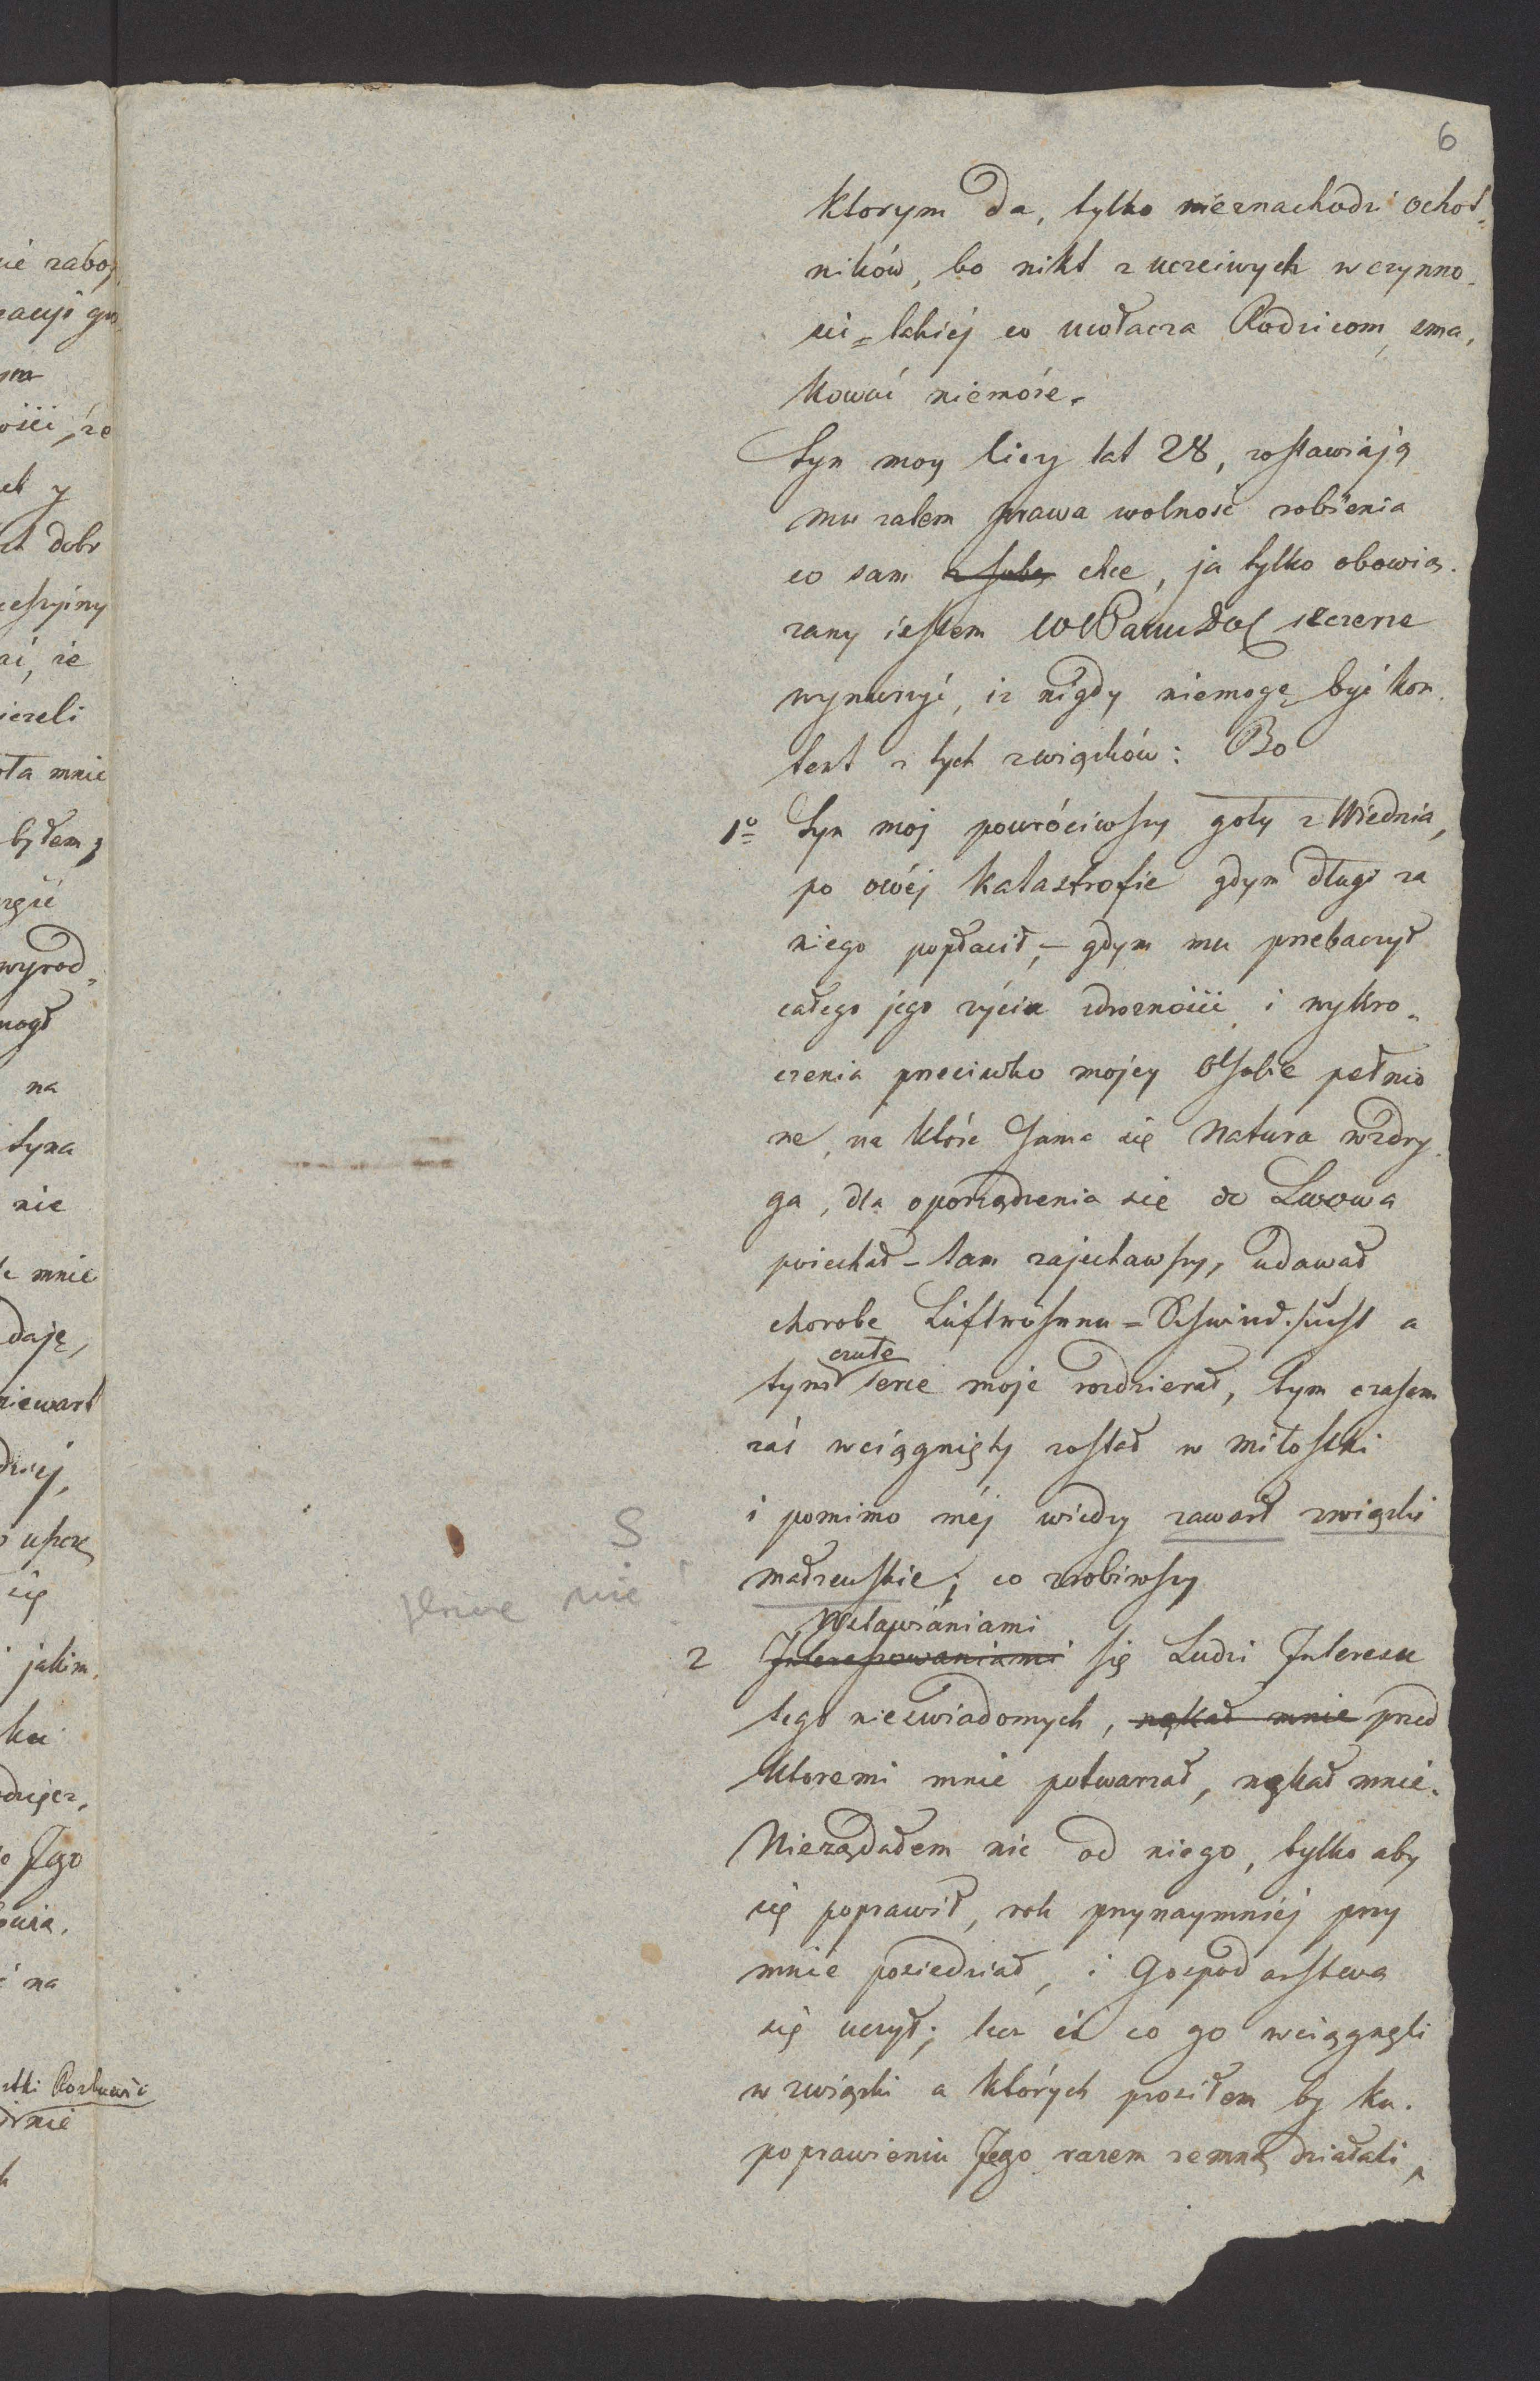 6
ktorym da, tylko nieznachodzi ochot„
ników, bo nikt z uczciwych w czynno„
sci=takiéj co uwłacza Rodzicom, sma„
kować niemóże.
Syn moy liczy lat 28, zostawiają
mu zatem prawa wolność robienia
co sam z sobą chce, ja tylko obowią„
zany jestem WWPanu Dob szczerze
wynurzyć, iz nigdy niemogę być kon„
tent z tych związków: Bo
1º Syn moj powróciwszy goły z Wiednia,
po owéj katastrofie gdym długi za
niego popłacił, – gdym mu przebaczył
całego jego życia zdrożności i wykro„
czenia przeciwko mojey Osobie pełnio
ne, na które Sama się Natura wzdry„
ga, dla oporządzenia się do Lwowa
poiechał – tam zajechawszy, udawał
chorobe Luftröhren=Schwindsucht a
tym czułe Serce moje rozdzierał, tym czasem
zaś wciągnięty został w miłostki
i pomimo méj wiedzy zawarł związki
małżeńskie; co zrobiwszy
Wstawianiami
2 Interesowaniami się Ludzi Interesu
tego nieświadomych, nękał mnie przed
ktoremi mnie potwarzał, nękał mnie.
Nieżądałem nic od niego, tylko aby
się poprawił, rok przynaymniéj przy
mnie posiedział, i Gospodarstwa
się uczył; lecz ci co go wciągnęli
w związki a których prosiłem by ku
poprawieniu Jego razem zemną działali,
S
nie
ié zaboj
ym
ości, że
et y
dobr
ai, że
ieżeli
ota mnie
byłem;
wyrod„
mogł
na
Syna
nie
mnie
daję,
niewart
się
jakim
ku
Jego
na
nie